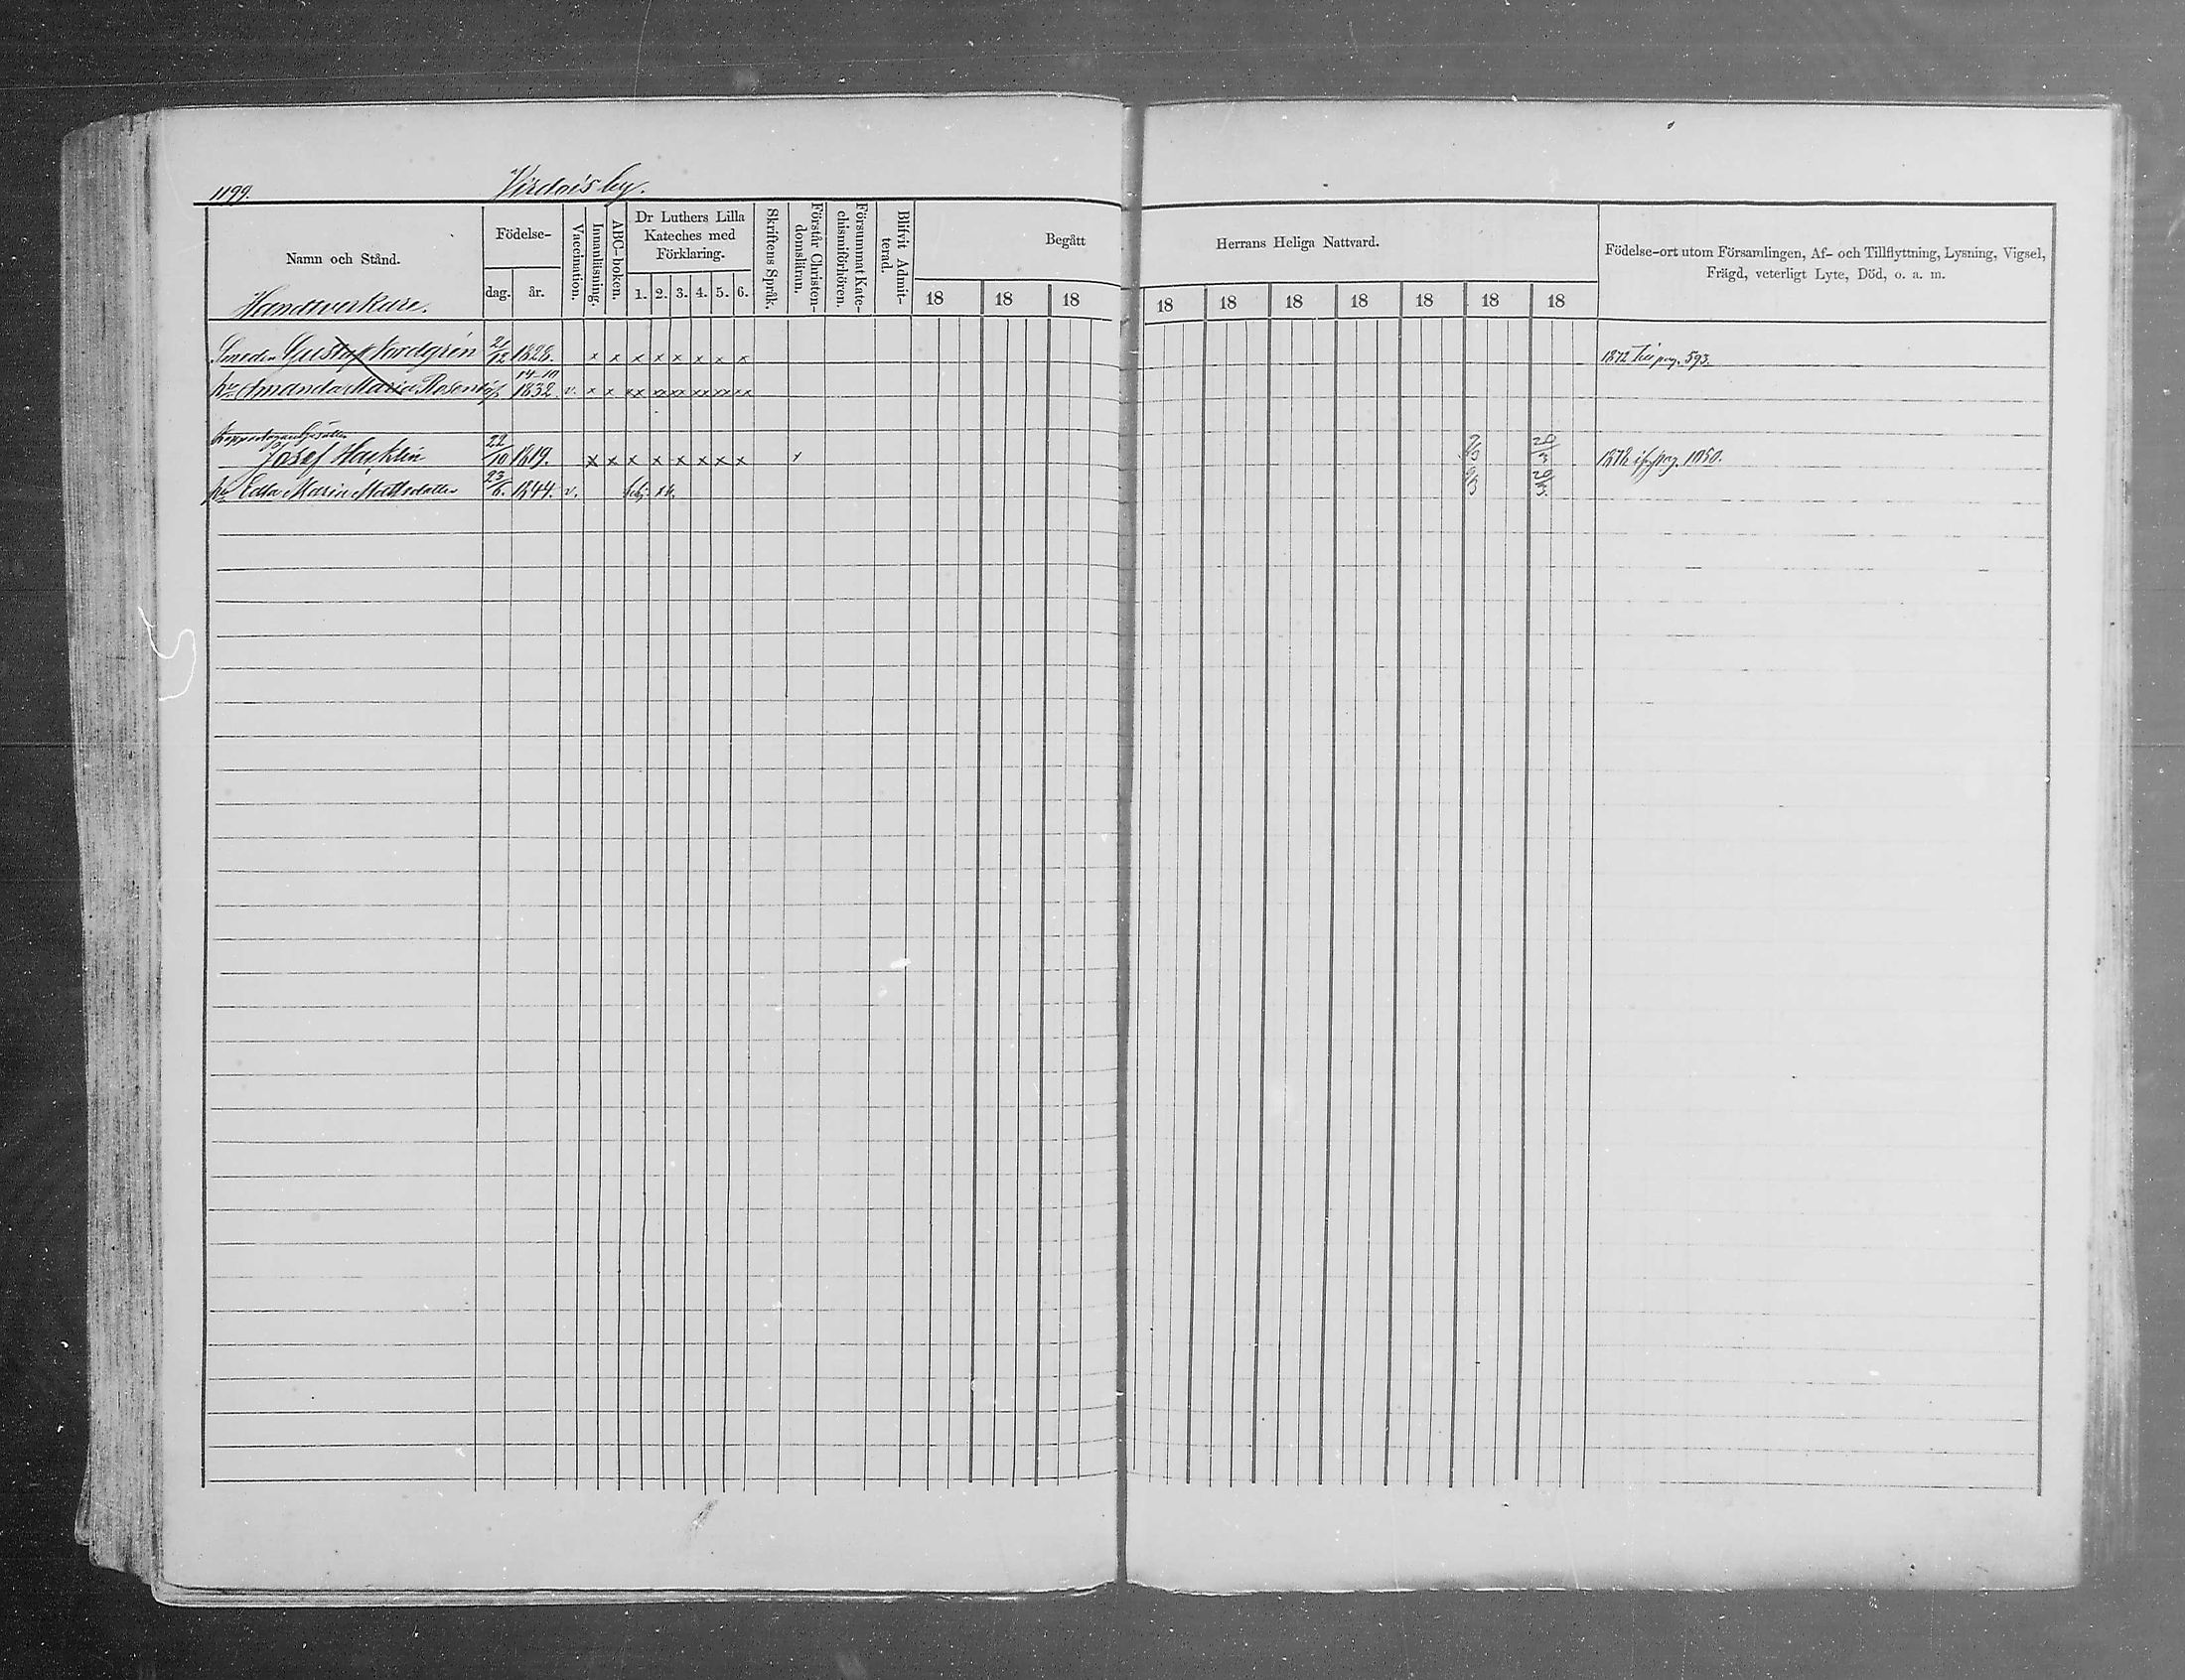 1199.
Virdois by.
Namn och Stånd.
Handtverkare.
Födelse-
dag.
år.
Vaccination.
Innanläsning.
ABC-boken.
Dr Luthers Lilla
Kateches med
Förklaring.
1. 2. 3. 4. 5. 6.
Skriftens Språk.
Förstår Christen-
domsläran.
Försummat Kate-
chismiförhören.
Blifvit Admit-
terad.
Begått
18 18 18
Herrans Heliga Nattvard.
18 18 18 18 18 18 18
Födelse-ort utom Församlingen, Af- och Tillflyttning, Lysning, Vigsel,
Frägd, veterligt Lyte, Död, o. a. m.
Smeden Gustaf Nordgrén 21/12 1828. x x x x x x x x 1872 till pag. 593.
14-10
hu Amanda Maria 1832. v. x x xx xx xx xx xx xx
Josef Hacklin 22/10 1819. x x x x x x x x x 1878 pag. 1050.
hu Edla Maria Mattsdotter 23/6. 1844. v.